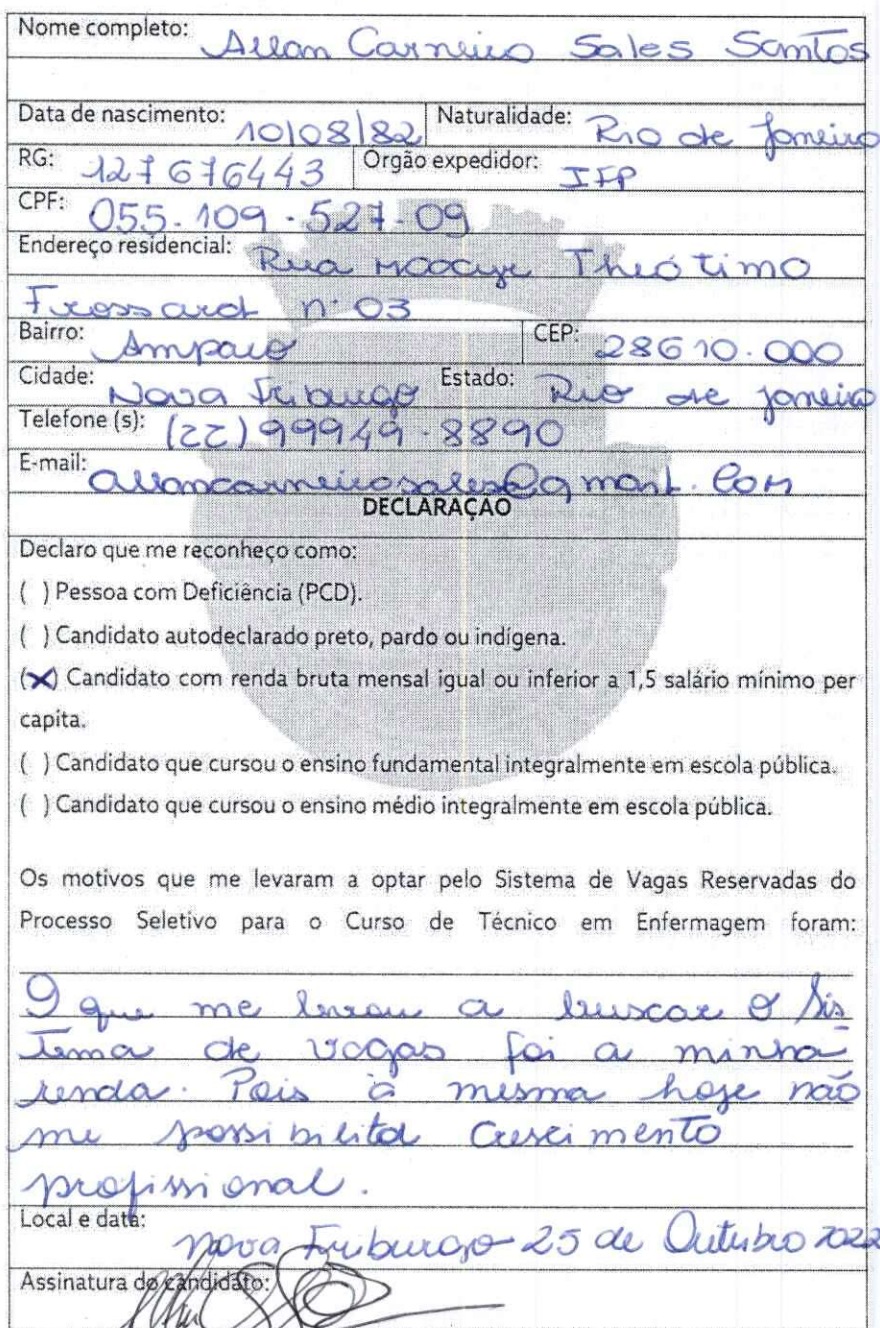 Nome completo: Allan Carneiro Sales Santos
Data de nascimento: 10/08/82 Naturalidade: Rio de Janeiro
RG: 127676443 Orgão expedidor: IFP
CPF: 055.109.527-09
Endereço residencial: Rua Moacyr Theótimo
Frossard n° 03
Bairro: Amparo CEP: 28610.000
Cidade: Nova Friburgo Estado: Rio de Janeiro
Telefone (s): (22) 99949-8890
E-mail: allancarneirosales@gmail.com
DECLARAÇÃO
Declaro que me reconheço como:
( ) Pessoa com Deficiência (PCD).
( ) Candidato autodeclarado preto, pardo ou indígena.
(X) Candidato com renda bruta mensal igual ou inferior a 1,5 salário mínimo per
capita.
( ) Candidato que cursou o ensino fundamental integralmente em escola pública.
( ) Candidato que cursou o ensino médio integralmente em escola pública.
Os motivos que me levaram a optar pelo Sistema de Vagas Reservadas do
Processo Seletivo para o Curso de Técnico em Enfermagem foram:
O que me levou a buscar o Sis
tema de vagas foi a minha
renda. Pois à mesma hoje não
me possibilita crescimento
profissional.
Local e data:
Nova Friburgo 25 de Outubro 2022
Assinatura do candidato: